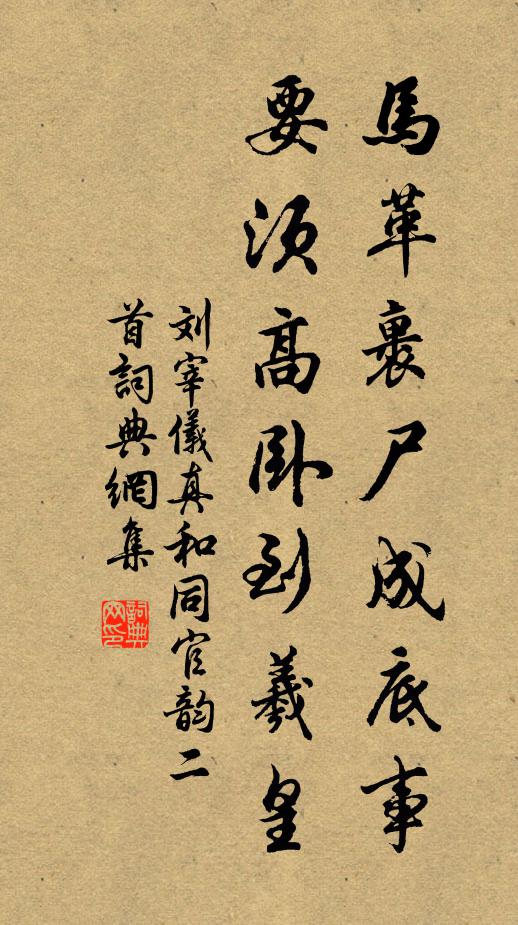 馬革裹尸成底事
要須高臥到羲皇
刘宰儀真和同官韵二
首詞典網集
詞典
网印